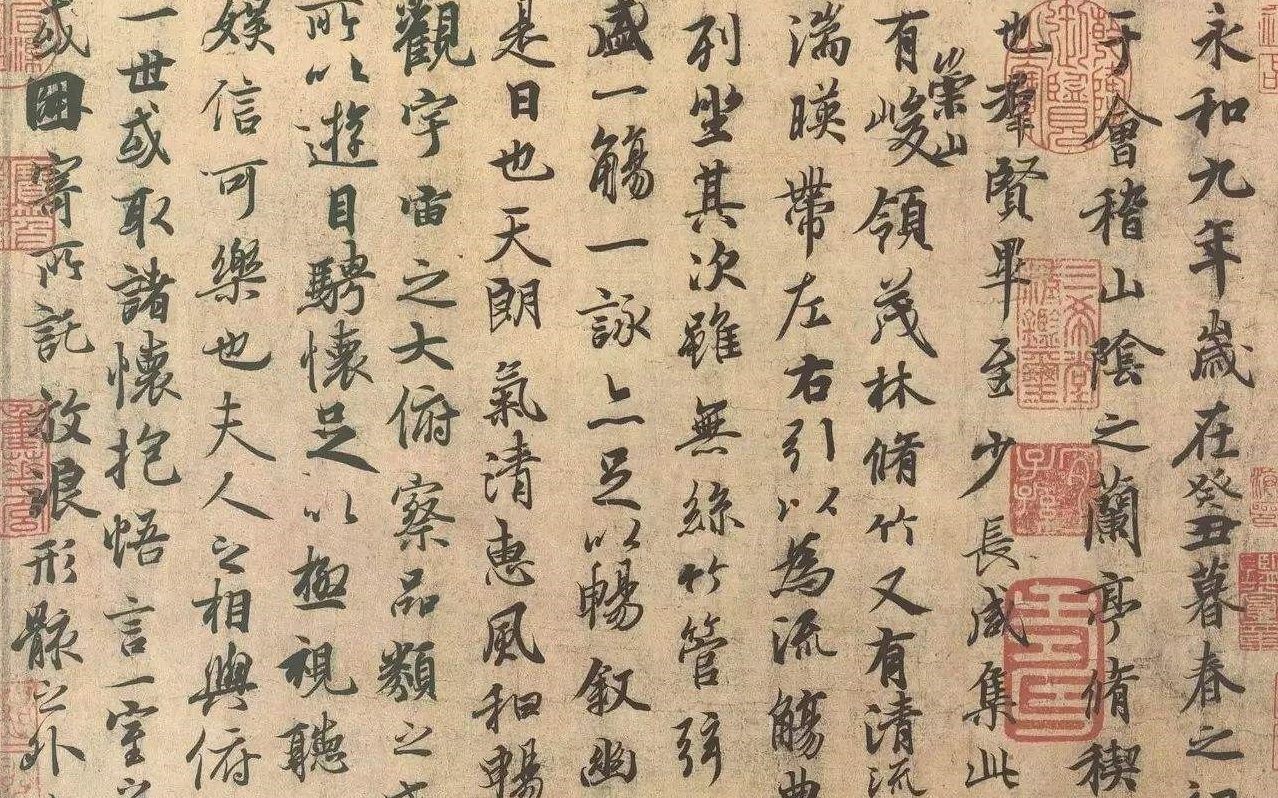 永和九年歲在癸丑暮春之初
于會稽山陰之蘭亭脩禊
也羣賢畢至少長咸集此
有崇山峻領茂林脩竹又有清流
湍暎帶左右引以為流觴曲
列坐其次雖無絲竹管弦
盛一觴一詠亦足以暢叙幽
是日也天朗氣清惠風和暢
觀宇宙之大俯察品類之盛
所以遊目騁懷足以極視聽
娛信可樂也夫人之相與俯
一世或取諸懷抱悟言一室之
或因寄所託放浪形骸之外
三希堂精鑑璽
宜子孫